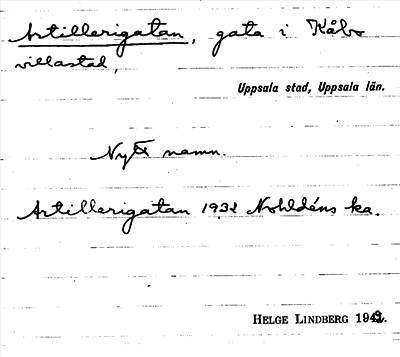 Artillerigatan, gata i Kåbo
villastad,
Uppsala stad, Uppsala län.
Nytt namn.
Artillerigatan 1932 Nohldéns ka.
HELGE LINDBERG